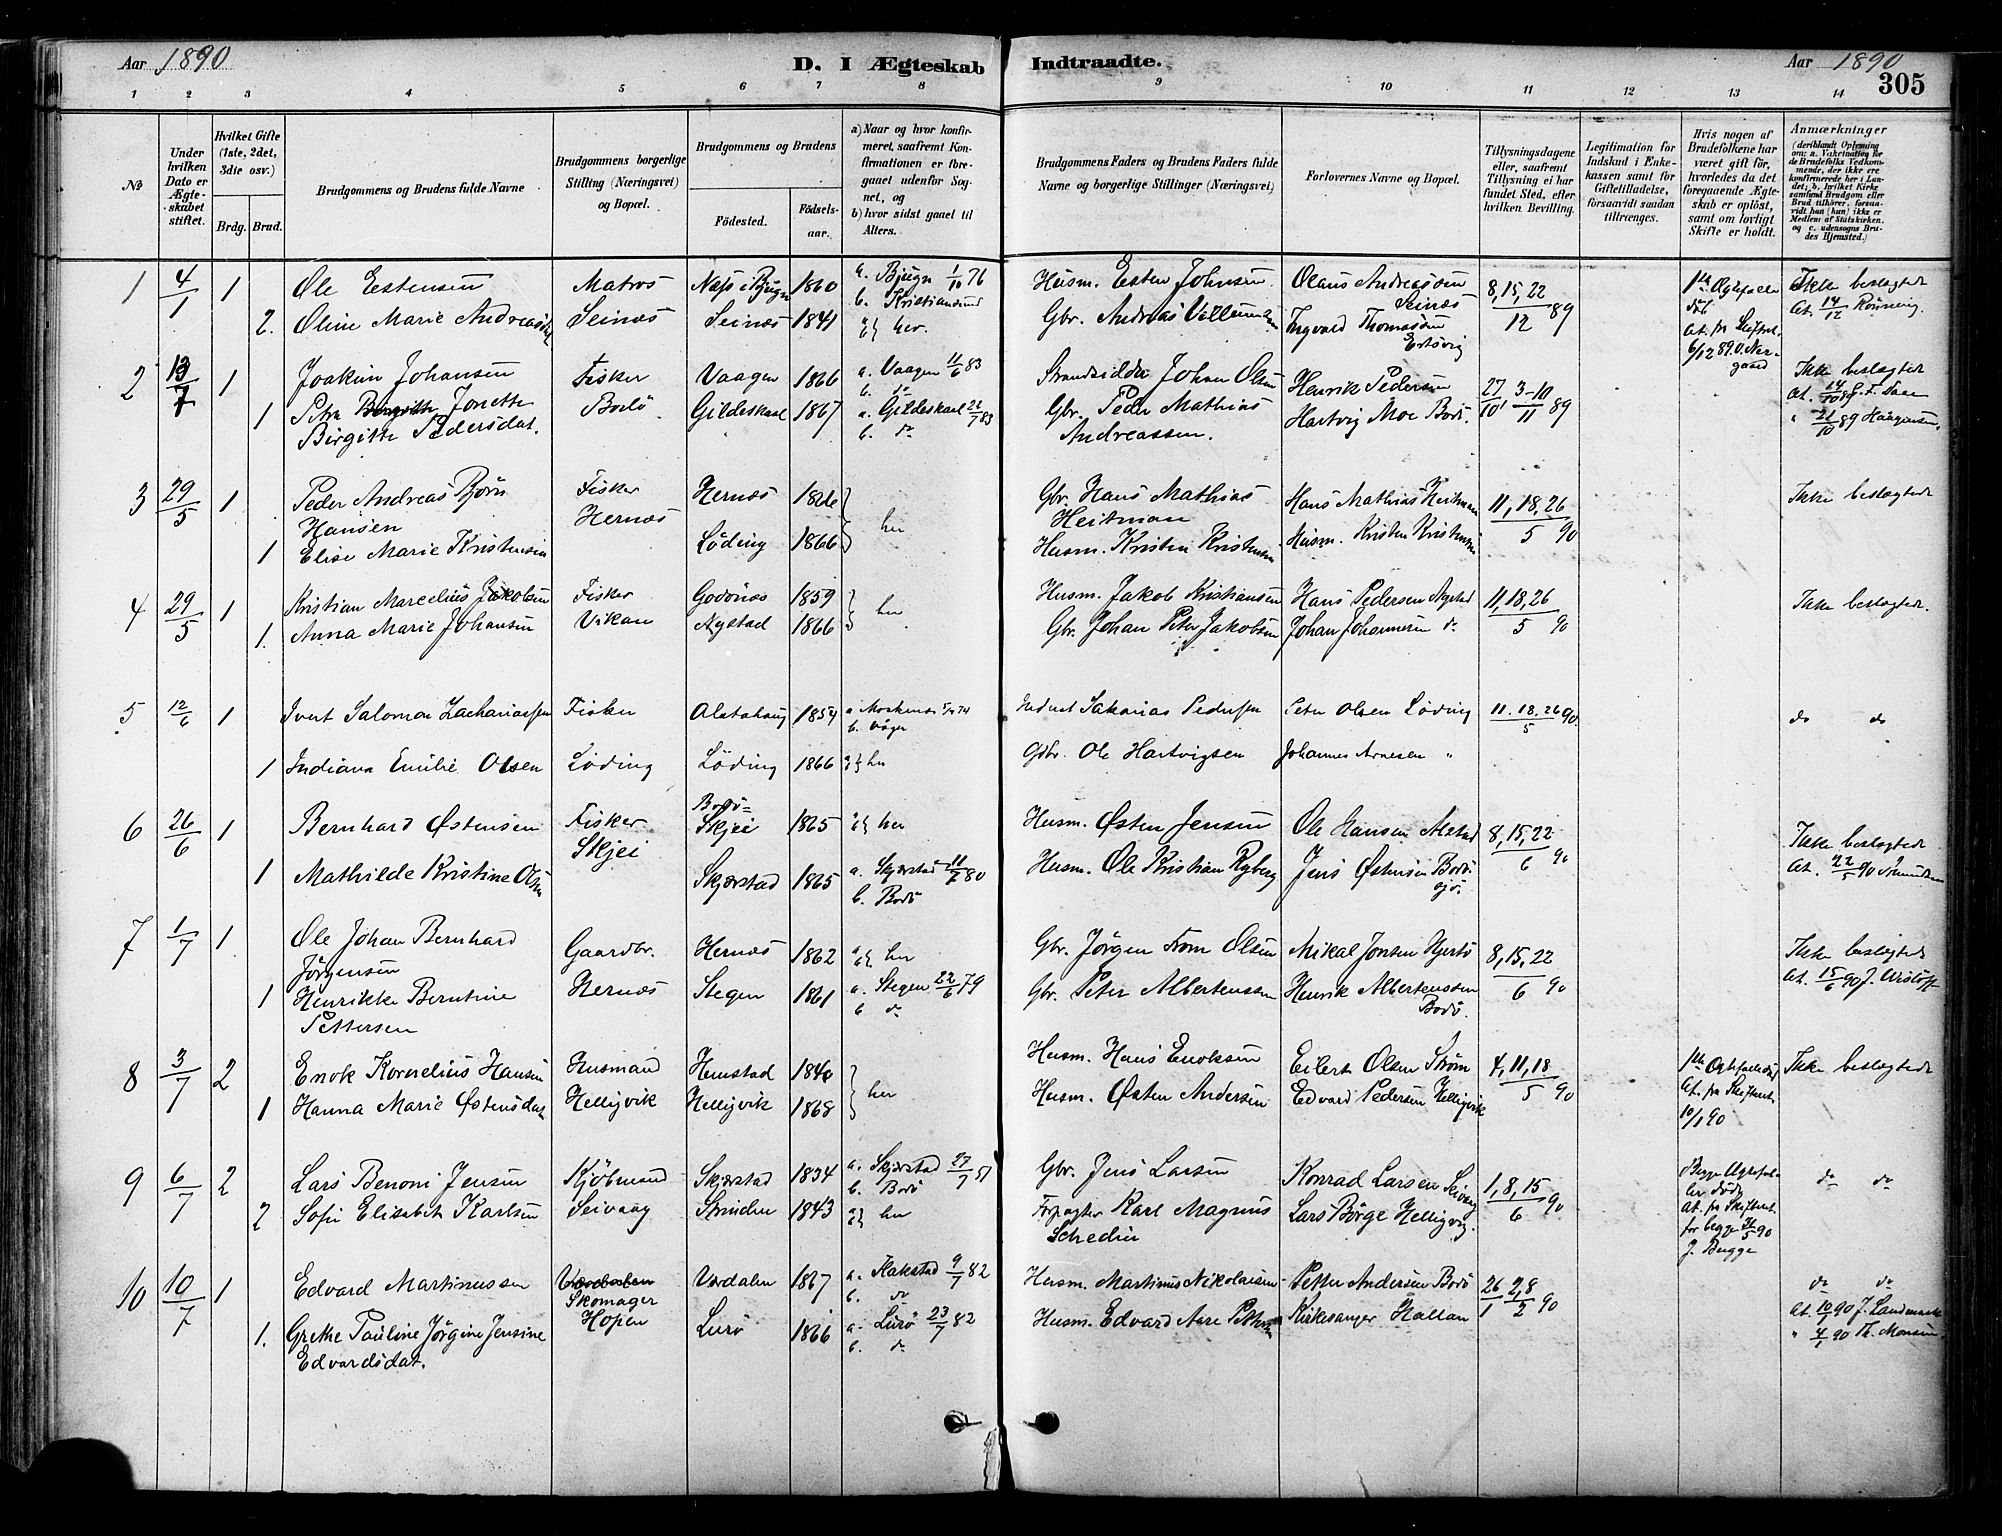 Aar 1890
D. I Ægteskab
Indtraadte.
Aar 1890
305
1 2 3 4 5 6 7 8 9 10 11 12 13 14
№
Under hvilken Dato er Ægteskabet stiftet.
Hvilket Gifte (1ste, 2det, 3die osv.)
Brdg. Brud.
Brudgommens og Brudens fulde Navne
Brudgommens borgerlige Stilling (Næringsvei) og Bopæl.
Brudgommens og Brudens
Fødested.
Fødselsaar.
a) Naar og hvor konfirmeret, saafremt Konfirmationen er foregaaet udenfor Sognet, og
b) hvor sidst gaaet til Alters.
Brudgommens Faders og Brudens Faders fulde Navne og borgerlige Stillinger (Næringsvei)
Forlovernes Navne og Bopæl.
Tillysningsdagene eller, saafremt Tillysning ei har fundet Sted, efter hvilken Bevilling.
Legitimation for Indskud i Enkekassen samt for Giftetilladelse, forsaavidt saadan tiltrænges.
Hvis nogen af Brudefolkene har været gift før, hvorledes da det foregaaende Ægteskab er opløst, samt om lovligt Skifte er holdt.
Anmærkninger (deriblandt Oplysning om: a. Vakcination for de Brudefolks Vedkommende, der ikke ere konfirmerede her i Landet; b. hvilket Kirkesamfund Brudgom eller Brud tilhører, forsaavidt han (hun) ikke er Medlem af Statskirken, og c. udensogns Brudes Hjemsted.)
1 4/1 1 Ole Estensen Matros Næs i Bjugn 1860 a. Bjugn 1/10 76 b. Kristiansund Husm. Esten Johnsen Olaus Andreassen Seinæs 8, 15, 22/12 89 1ste Ægtefælle død At. fra Skifteret. 6/12 89 Ikke beslægtede At. 14/12 Rønning
2. Oline Marie Seinæs Seinæs 1841 her. Gbr. Andreas Ingvard Thomassen
2 13/7 1 Joakim Johansen Fisker Vaagen 1866 a. Vaagen 11/6 83 b. do Strandsidder Johan Olsen Henrik Pedersen 27/10, 3-10/11 89 Ikke beslægtede
1 Petra Jonette Birgitte Pedersdat. Bodö Gildeskaal 1867 a. Gildeskaal 22/7 83 b. do Gbr. Peder Mathias Andreassen. Hartvig Moe Bodö. 21/10 89
3 29/5 1 Peder Andreas Bjørn Hansen Fisker Hernæs Hernæs 1826 her Gbr. Hans Mathias Heitman Hans Mathias Heitman 11, 18, 26/5 90 Ikke beslægtede
1 Elise Marie Kristensen Löding 1866 Husm. Kristen Kristensen Husm. Kristen Kristensen
4 29/5 1 Kristian Marcelius Jakobsen Fisker Vikan Godönes 1859 her Husm. Jakob Kristiansen Hans Pedersen 11, 18, 26/5 90 Ikke beslægtede.
1. Anna Marie Johansen 1866 Gbr. Johan Peter Jakobsen Johan Johannesen do
5 12/6 1 Ivert Salomon Zachariassen Fisker Alstahaug 1854 b. Våger Sakarias Pedersen Peter Olsen Löding 11. 18. 26/5 90. do do
1 Indiana Emilie Olsen Löding Löding 1866 her Gdbr. Ole Hartvigsen Johannes Arnesen "
6 26/6 1 Bernhard Østensen Fisker Skjei Bodö- Skjei 1865 her Husm. Østen Jensen Ole Hansen Alstad 8, 15, 22/6 90 Ikke beslægtede
1 Mathilde Kristine Olsen Skjerstad 1865 a. Skjerstad 11/7 80 b. Bodö Husm. Ole Kristian Ryberg Jens Østensen Bodösjö. At. 22/5 90
7 1/7 1 Ole Johan Bernhard Jörgensen Gaardbr. Hernæs Hernæs 1862 her Gbr. Jörgen From Olsen Mikal Jonsen 8, 15, 22/6 90 Ikke beslægtede
1 Henrikke Berntine Pettersen Stegen 1861 a. Stegen 22/6 79 b do Gbr. Peter Albertenssen Henrik Albertenssen Bodö. At. 15/6 90
8 3/7 2 Enok Kornelius Hansen Husmand Helligvik Hemstad 1840 her Husm. Hans Enoksen Eilert Olsen Strøm 4, 11, 18/5 90 1ste Ægtefælle død At. fra Skifteret. 10/1 90 Ikke beslægtede
1 Hanna Marie Østensdat. Helligvik 1868 Husm. Østen Andersen Edvard Pedersen Helligvik
9 6/7 2 Lars Benoni Jensen Kjöbmand Seivaag Skjerstad 1834 a. Skjerstad 27/7 51 b. Bodö Gbr. Jens Larsen Konrad Larsen Seivaag 1, 8, 15/6 90 Begge Ægtefæller døde At. fra Skifteret. for begge 31/5 90 J. Bugge do do
2 Sofie Elisabet Karlsen Strinden 1843 her Forpagter Karl Magnus Schedin Lars Börge Helligvig.
10 10/7 1 Edvard Martinussen Skomager Hopen Verdalen 1867 a. Kakstad 9/7 82 b. do Husm. Martinus Nikolaisen Petter Andersen Bodö 26/1 2, 8/2 90 do do At. 10/7 90 J. Landmark
1. Grethe Pauline Jörgine Jensine Edvardsdat. Lurö 1866 a. Lurö 23/7 82 b. do Husm. Edvard Aare Kirkesanger Hallan " 4/7 90 Th. Monsen